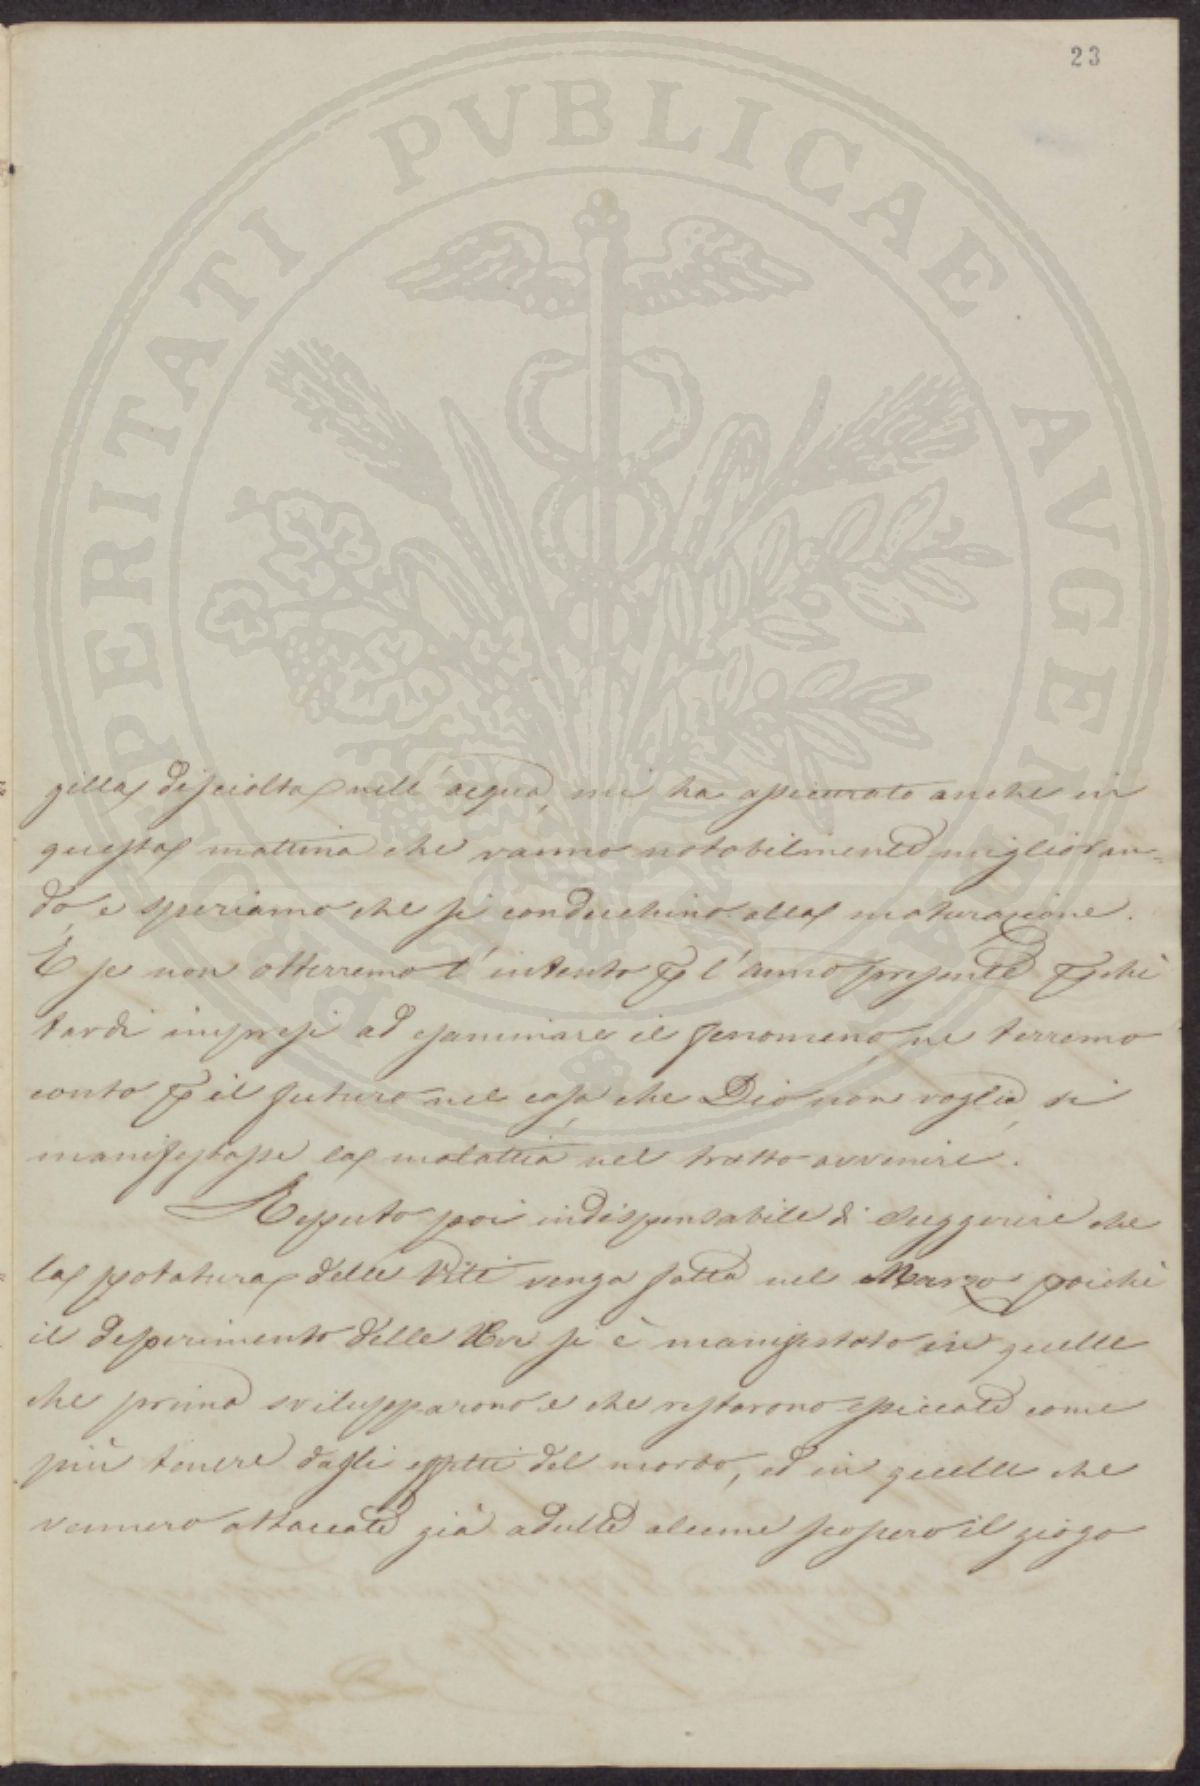 23
PROSPERITATI PVBLICAE AVGENDAE
gilla disciolta nell'acqua, mi ha assicurato anche in
questa mattina che vanno notabilmente miglioran=
do, e speriamo che si conduchino alla maturazione.
E se non otterremo l'intento p l'anno presente pchè
tardi impresi ad esaminare il fenomeno, ne terremo
conto p il futuro nel caso che Dio non voglia, si
manifestasse la malattia nel tratto avvenire.
Reputo poi indispensabile di suggerire che
la potatura delle Viti venga fatta nel Marzo poichè
il deperimento delle Uve si è manifestato in quelle
che prima svilupparono e che restarono spiccate come
più tenere dagli effetti del morbo, ed in quelle che
vennero attaccate già adulte alcune scossero il giogo